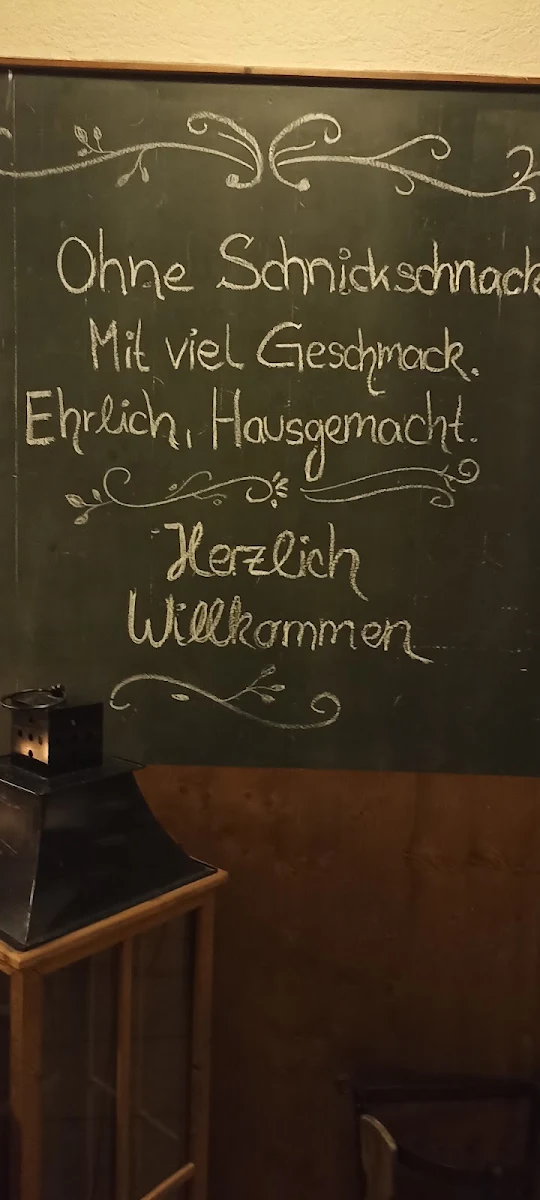 Ohne Schnickschnack
Mit viel Geschmack.
Ehrlich, Hausgemacht.
Herzlich
Willkommen